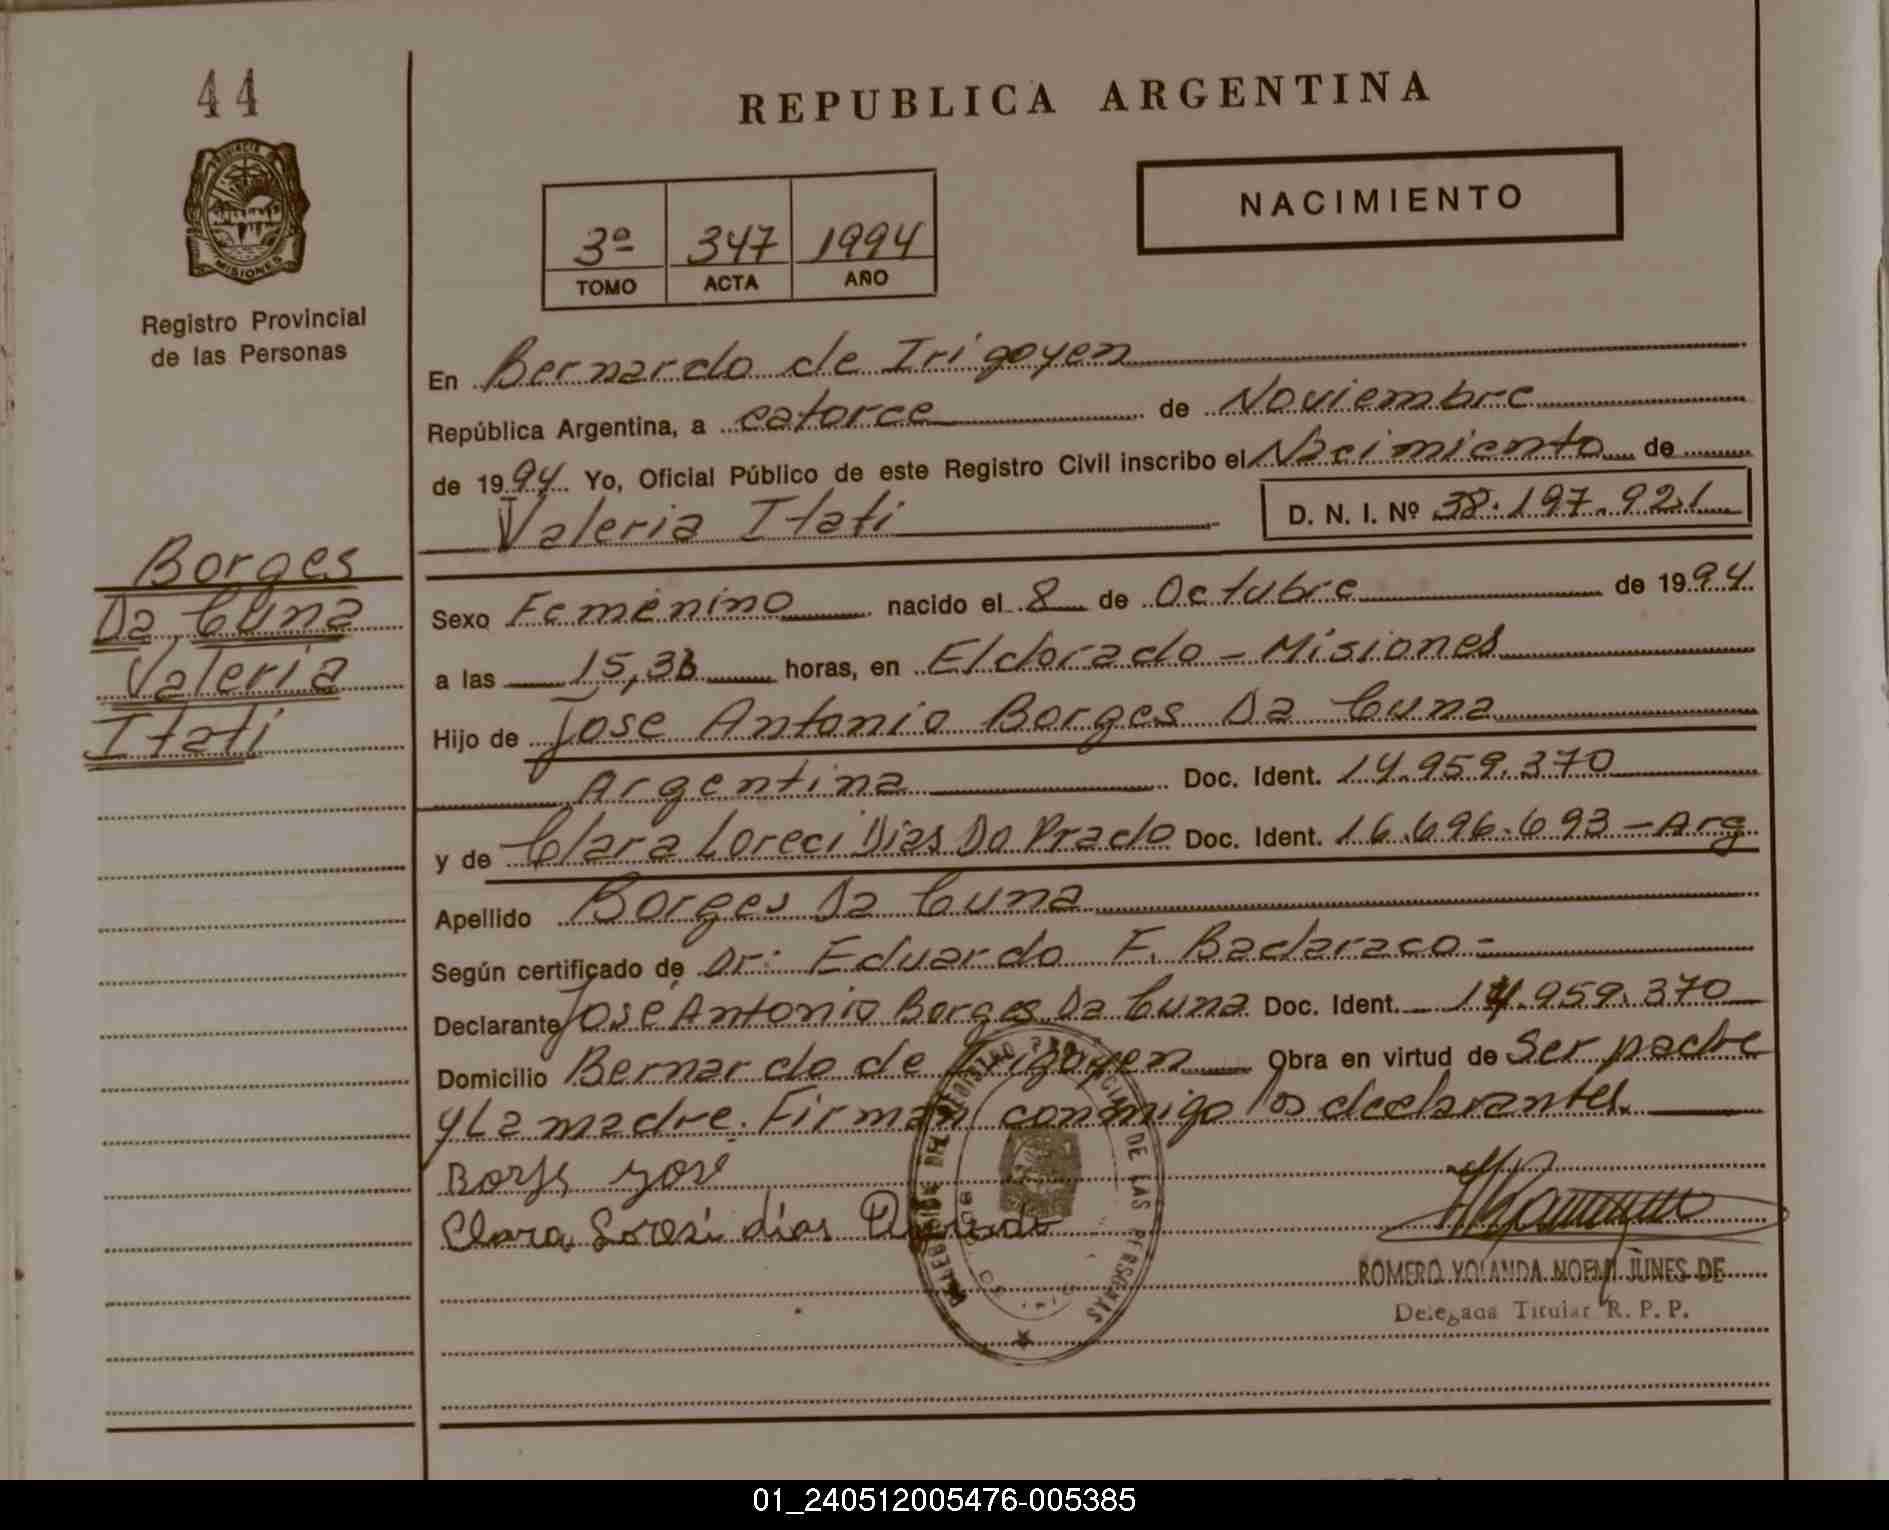 44
PROVINCIA DE
MISIONES
Registro Provincial
de las Personas
Borges
Da Cuna
Valeria
Itati
REPUBLICA ARGENTINA
NACIMIENTO
3º 347 1994
TOMO ACTA AÑO
En Bernardo de Irigoyen
República Argentina, a catorce de Noviembre
de 1994 Yo, Oficial Público de este Registro Civil inscribo el Nacimiento de
Valeria Itati D. N. I. Nº 38.197.921
Sexo Femenino nacido el 8 de Octubre de 1994
a las 15,36 horas, en Eldorado - Misiones
Hijo de Jose Antonio Borges Da Cuna
Argentina Doc. Ident. 14.959.370
y de Clara Loreci Dias Do Prado Doc. Ident. 16.696.693 - Arg
Apellido Borges Da Cuna
Según certificado de Dr: Eduardo F. Badaraco -
Declarante José Antonio Borges Da Cuna Doc. Ident. 14.959.370
Domicilio Bernardo de Irigoyen Obra en virtud de Ser padre
y La madre. Firman conmigo los declarantes.
Borges José
Clara Loresi dias
DE LAS PERSONAS
ROMERO YOLANDA NOEMI JUNES DE
Delegada Titular R. P. P.
01_240512005476-005385